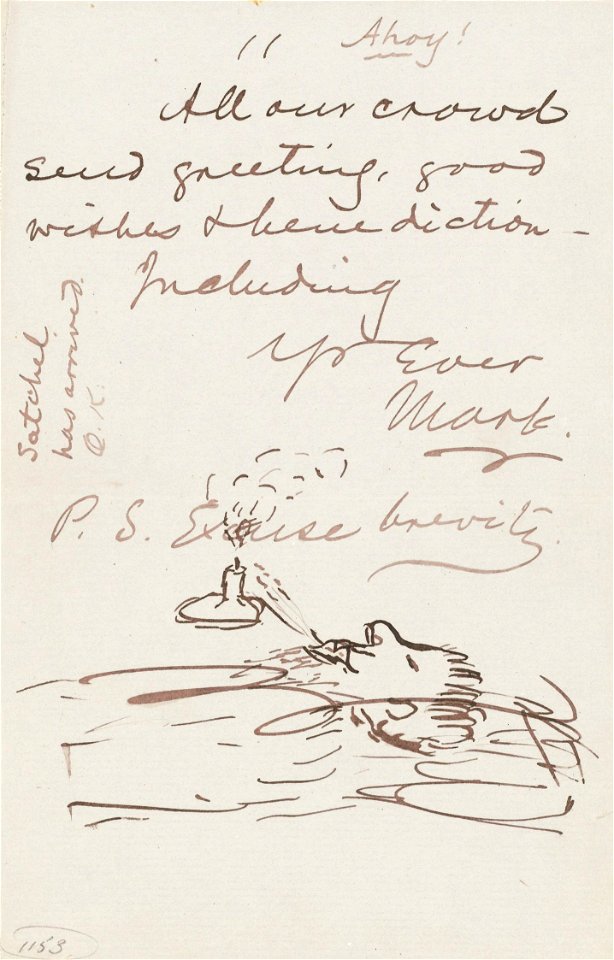 "
Ahoy!
All our crowd
send greeting, good
wishes & benediction –
Including
Yr Ever
Mark.
Satchel
has arrived.
O.K.
P. S. Excuse brevity.
1153